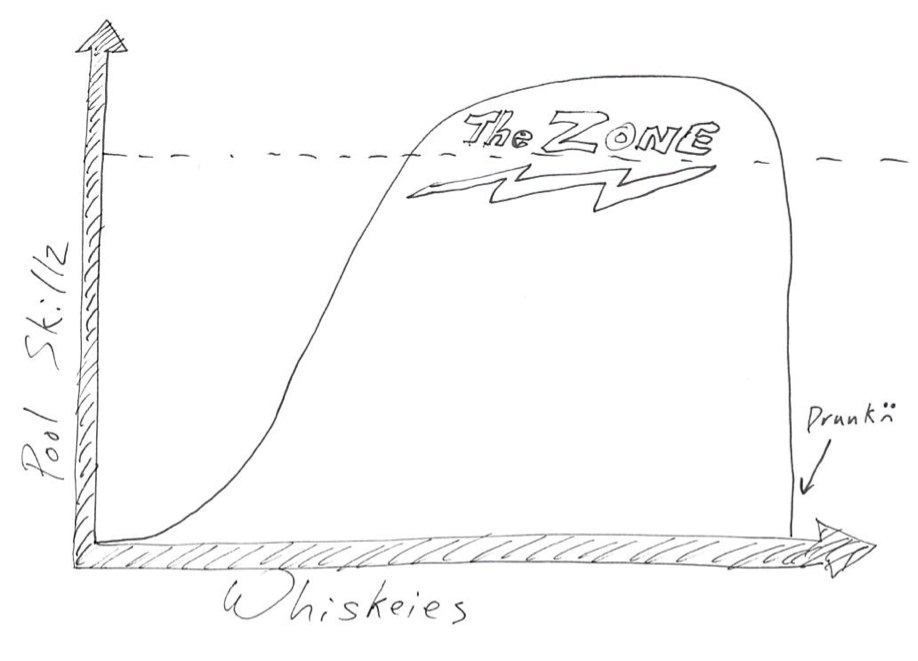 The ZONE
Pool Skillz
Drunk :(
Whiskeies